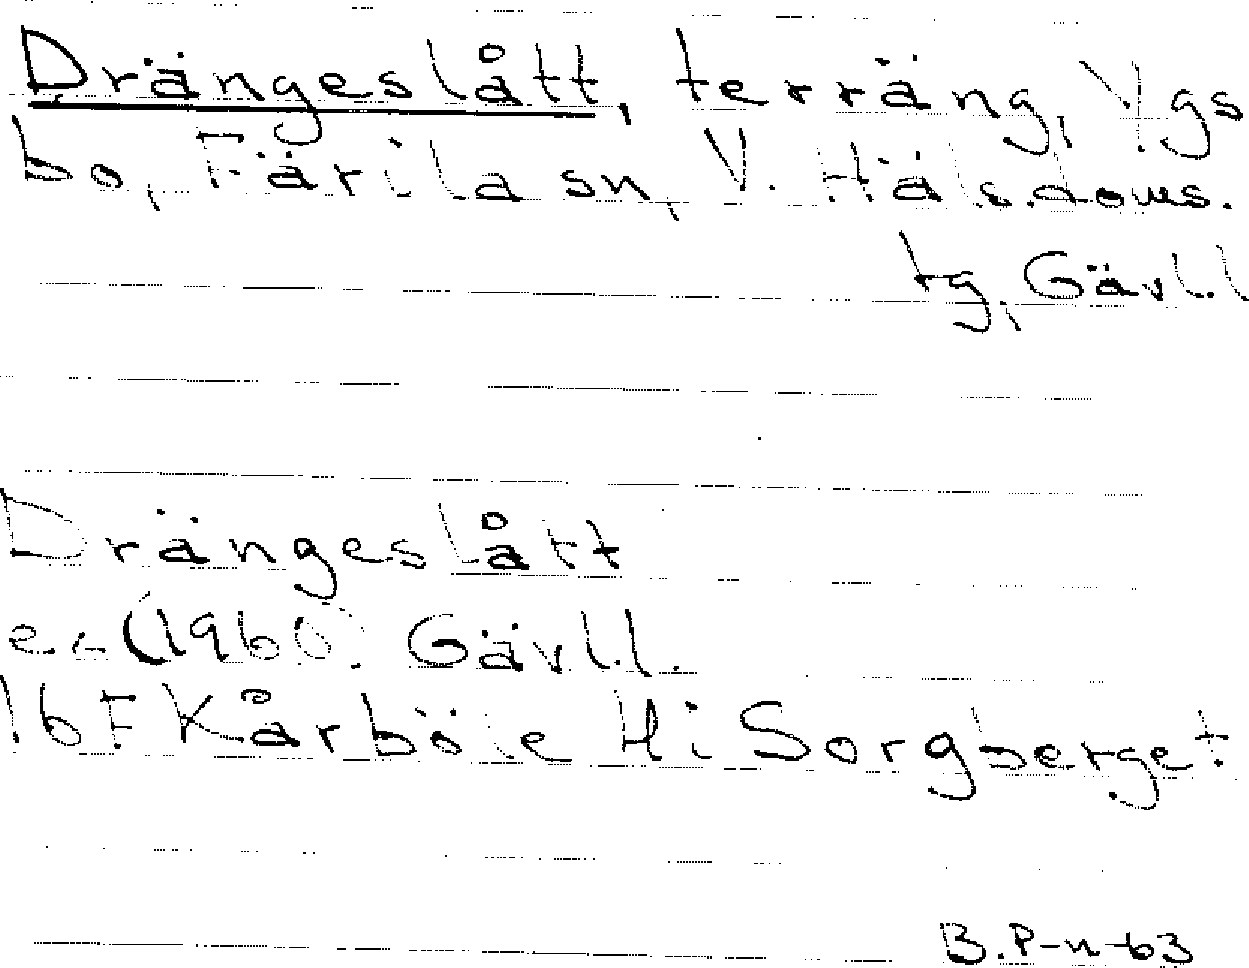 Drängeslått, terräng, Ygs
bo, Färila sn, V. Häls. doms.
tg, Gävl.l
Drängeslått
ek (1960) Gävl.l.
16F Kårböle Hi Sorgberget
B.P-n-63